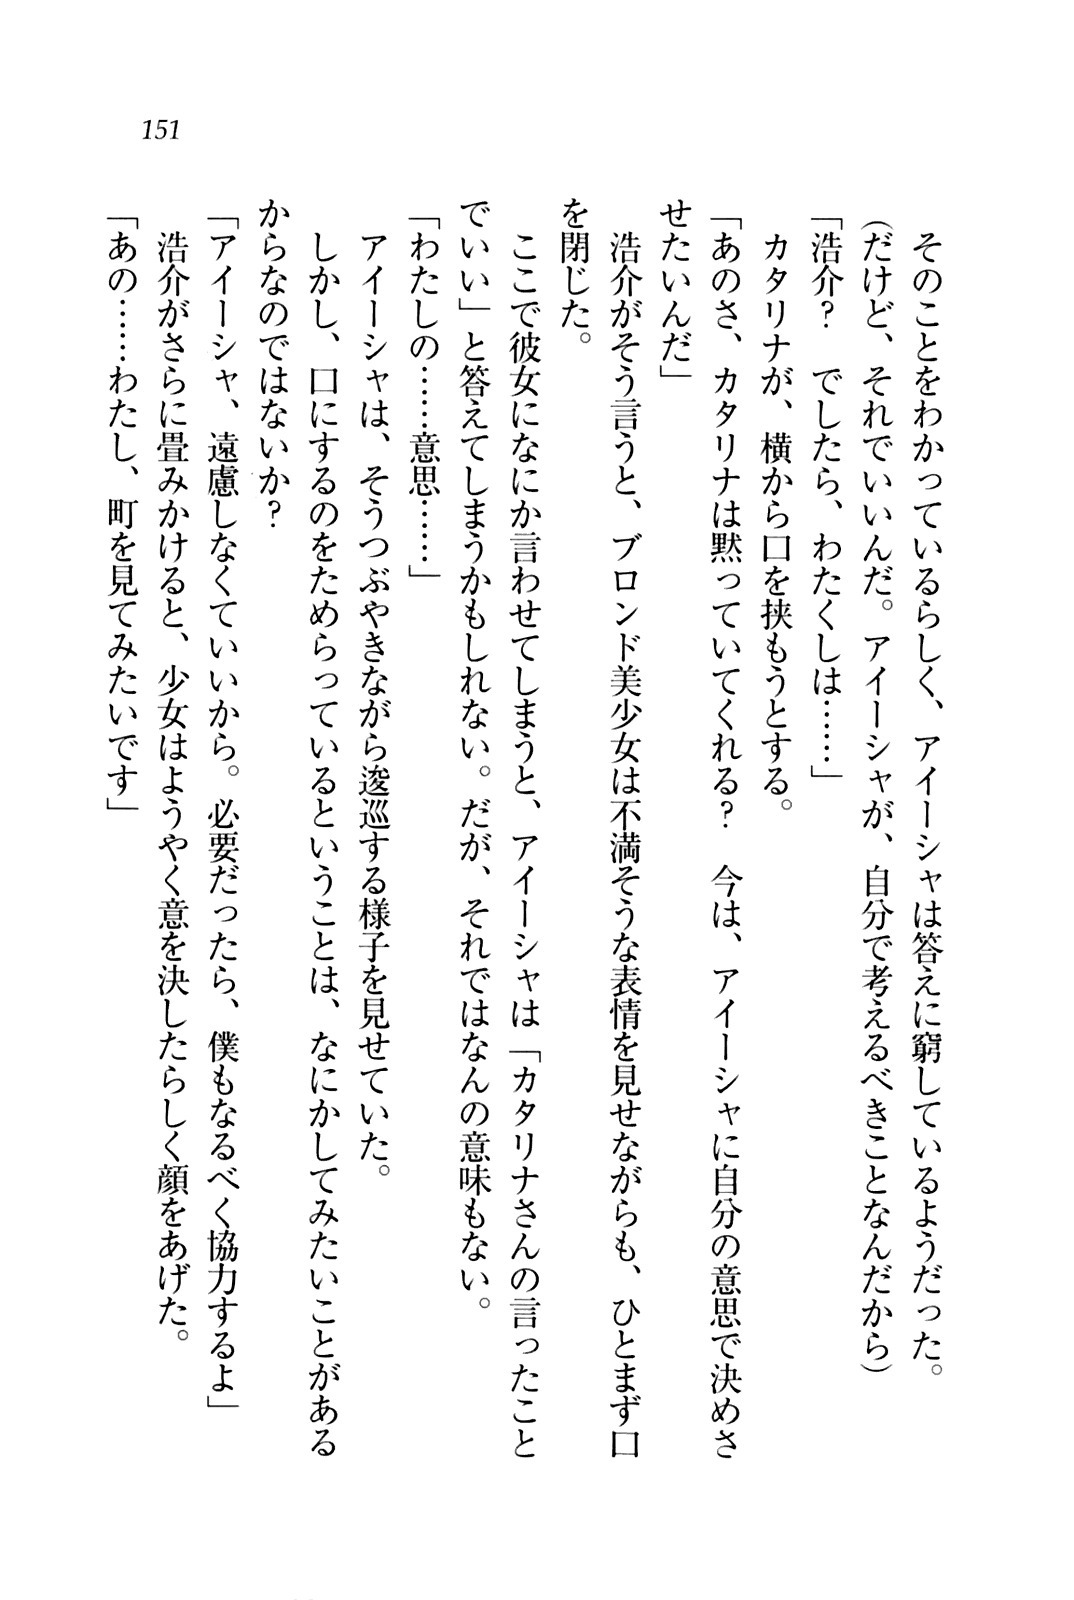 151
そのことをわかっているらしく、アイーシャは答えに窮しているようだった。
（だけど、それでいいんだ。アイーシャが、自分で考えるべきことなんだから）
「浩介？　でしたら、わたくしは……」
カタリナが、横から口を挟もうとする。
「あのさ、カタリナは黙っていてくれる？　今は、アイーシャに自分の意思で決めさ
せたいんだ」
浩介がそう言うと、ブロンド美少女は不満そうな表情を見せながらも、ひとまず口
を閉じた。
ここで彼女になにか言わせてしまうと、アイーシャは「カタリナさんの言ったこと
でいい」と答えてしまうかもしれない。だが、それではなんの意味もない。
「わたしの……意思……」
アイーシャは、そうつぶやきながら逡巡する様子を見せていた。
しかし、口にするのをためらっているということは、なにかしてみたいことがある
からなのではないか？
「アイーシャ、遠慮しなくていいから。必要だったら、僕もなるべく協力するよ」
浩介がさらに畳みかけると、少女はようやく意を決したらしく顔をあげた。
「あの……わたし、町を見てみたいです」